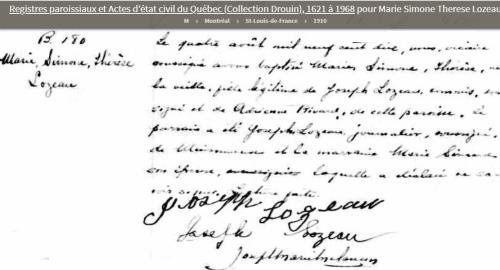 Registres paroissiaux et Actes d'état civil du Québec (Collection Drouin), 1621 à 1968 pour Marie Simone Therese Lozeau
M › Montréal › St-Louis-de-France › 1910
B. 180
Marie, Simone, Thérèse
Lozeau
Le quatre août mil neuf cent dix, nous, vicaire
soussigné avons baptisé Marie, Simone, Thérèse, née
la veille, fille légitime de Joseph Lozeau, commis, sous
signé et de Adrienne Rivard, de cette paroisse. Le
parrain a été Joseph Lozeau, journalier, soussigné,
de et la marraine Marie
soussignés laquelle a déclaré ne sa
voir signer. Lecture faite.
Joseph Lozeau
Joseph Lozeau